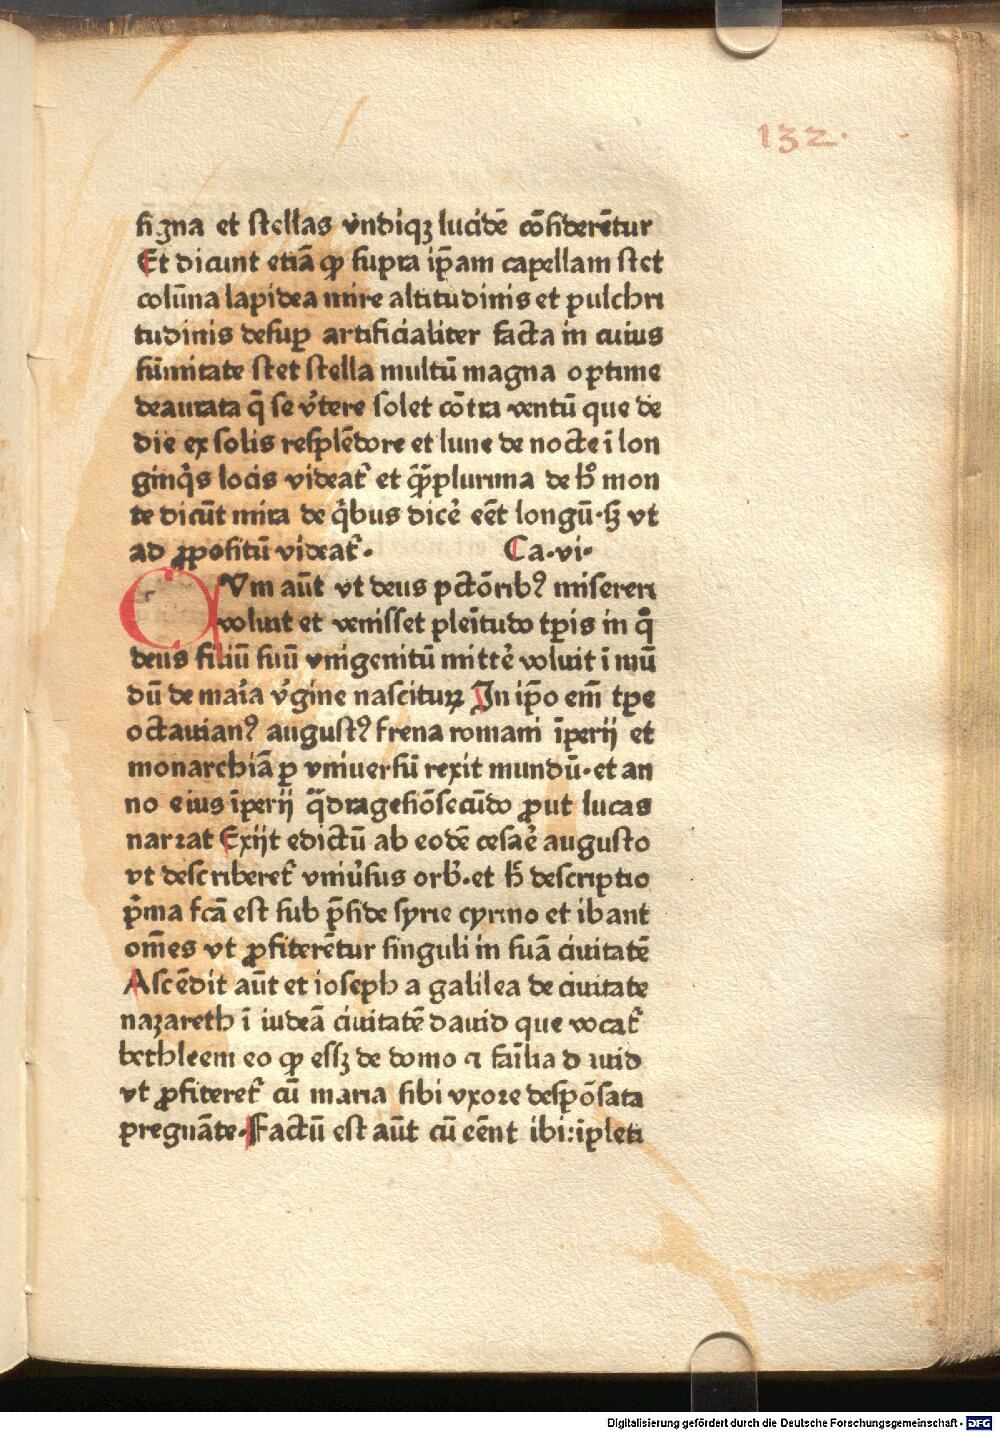 132.
signa et stellas vndiqꝫ lucidē cōsiderētur
Et dicunt etiā ꝙ supra ip̄am capellam stet
colūna lapidea mire altitudinis et pulchri
tudinis desuꝑ artificialiter facta in cuius
sūmitate stet stella multū magna optime
deaurata q̄ se v̓tere solet cōtra ventū que de
die ex solis resplēdore et lune de nocte ī lon
ginq̄s locis videat᷑ et q̄ꝑplurima de h̓ mon
te dicūt mira de q̓bus dicē eēt longū·sꝫ vt
ad ꝓpositū videat᷑. Ca·vi·
CVm aūt vt deus pctōribꝰ misereri
voluit et venisset pleītudo tp̄is in q̄
deus filiū suū vnigenitū mittē voluit ī mū
dū de maīa v̓gine nasciturꝝ In ip̄o em̄ tp̄e
octauianꝰ augustꝰ frena romani īperij et
monarchiā ꝑ vniuersū rexit mundū·et an
no eius īperij q̄dragesiōsecūdo ꝓut lucas
narrat Exijt edictū ab eodē cesaē augusto
vt describeret᷑ vniu̓sus orb̓·et h̓ descriptio
p̓ma fcā est sub p̄side syrie cyrino et ibant
om̄es vt ꝓfiterētur singuli in suā ciuitatē
Ascēdit aūt et ioseph a galilea de ciuitate
nazareth ī iudeā ciuitatē dauid que vocat᷑
bethleem eo ꝙ essꝫ de domo ⁊ faīlia d uid
vt ꝓfiteret᷑ cū maria sibi vxore despōsata
pregnāte·Factū est aūt cū eēnt ibi:īpleti
Digitalisierung gefördert durch die Deutsche Forschungsgemeinschaft - DFG